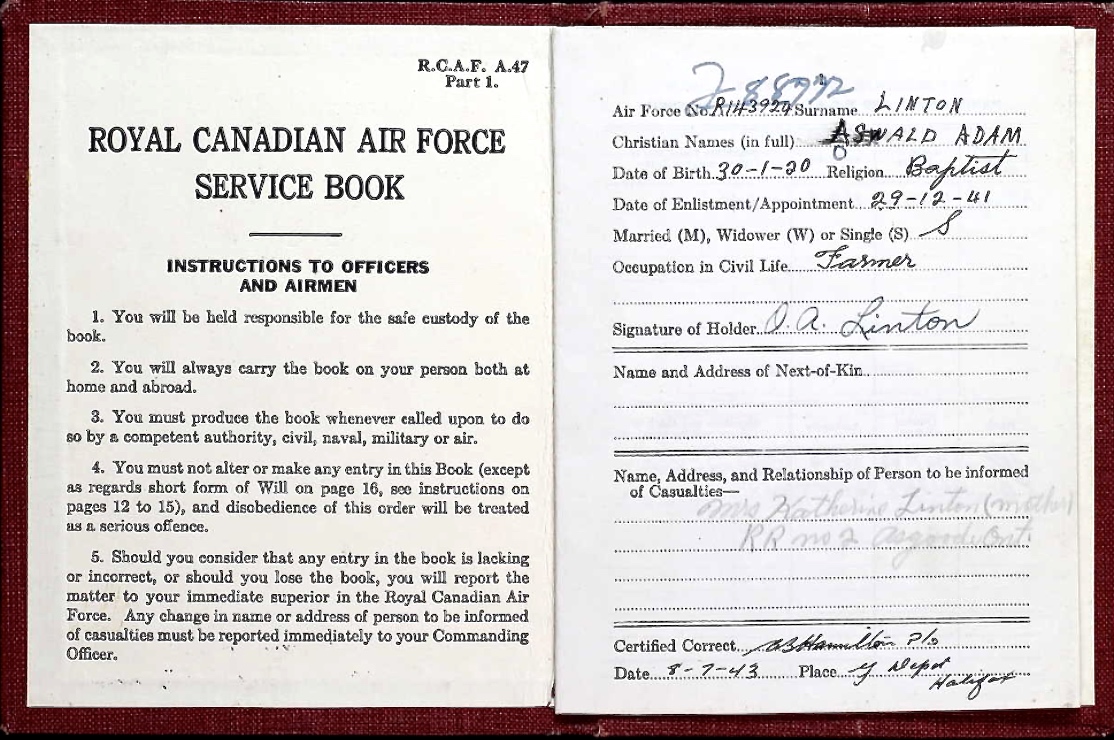 R.C.A.F. A.47
Part 1.
ROYAL CANADIAN AIR FORCE
SERVICE BOOK
INSTRUCTIONS TO OFFICERS
AND AIRMEN
1. You will be held responsible for the safe custody of the
book.
2. You will always carry the book on your person both at
home and abroad.
3. You must produce the book whenever called upon to do
so by a competent authority, civil, naval, military or air.
4. You must not alter or make any entry in this Book (except
as regards short form of Will on page 16, see instructions on
pages 12 to 15), and disobedience of this order will be treated
as a serious offence.
5. Should you consider that any entry in the book is lacking
or incorrect, or should you lose the book, you will report the
matter to your immediate superior in the Royal Canadian Air
Force. Any change in name or address of person to be informed
of casualties must be reported immediately to your Commanding
Officer.
Air Force No. R143929 Surname LINTON
Christian Names (in full) ASWALD ADAM
O
Date of Birth 30-1-20 Religion Baptist
Date of Enlistment/Appointment 29-12-41
Married (M), Widower (W) or Single (S) S
Occupation in Civil Life Farmer
Signature of Holder O. A. Linton
Name and Address of Next-of-Kin
Name, Address, and Relationship of Person to be informed
of Casualties—
Mrs Katherine Linton (mother)
RR no 2 Osgoode Ont.
Certified Correct Hamilton P/O
Date 8-7-43 Place Y Depot
Halifax